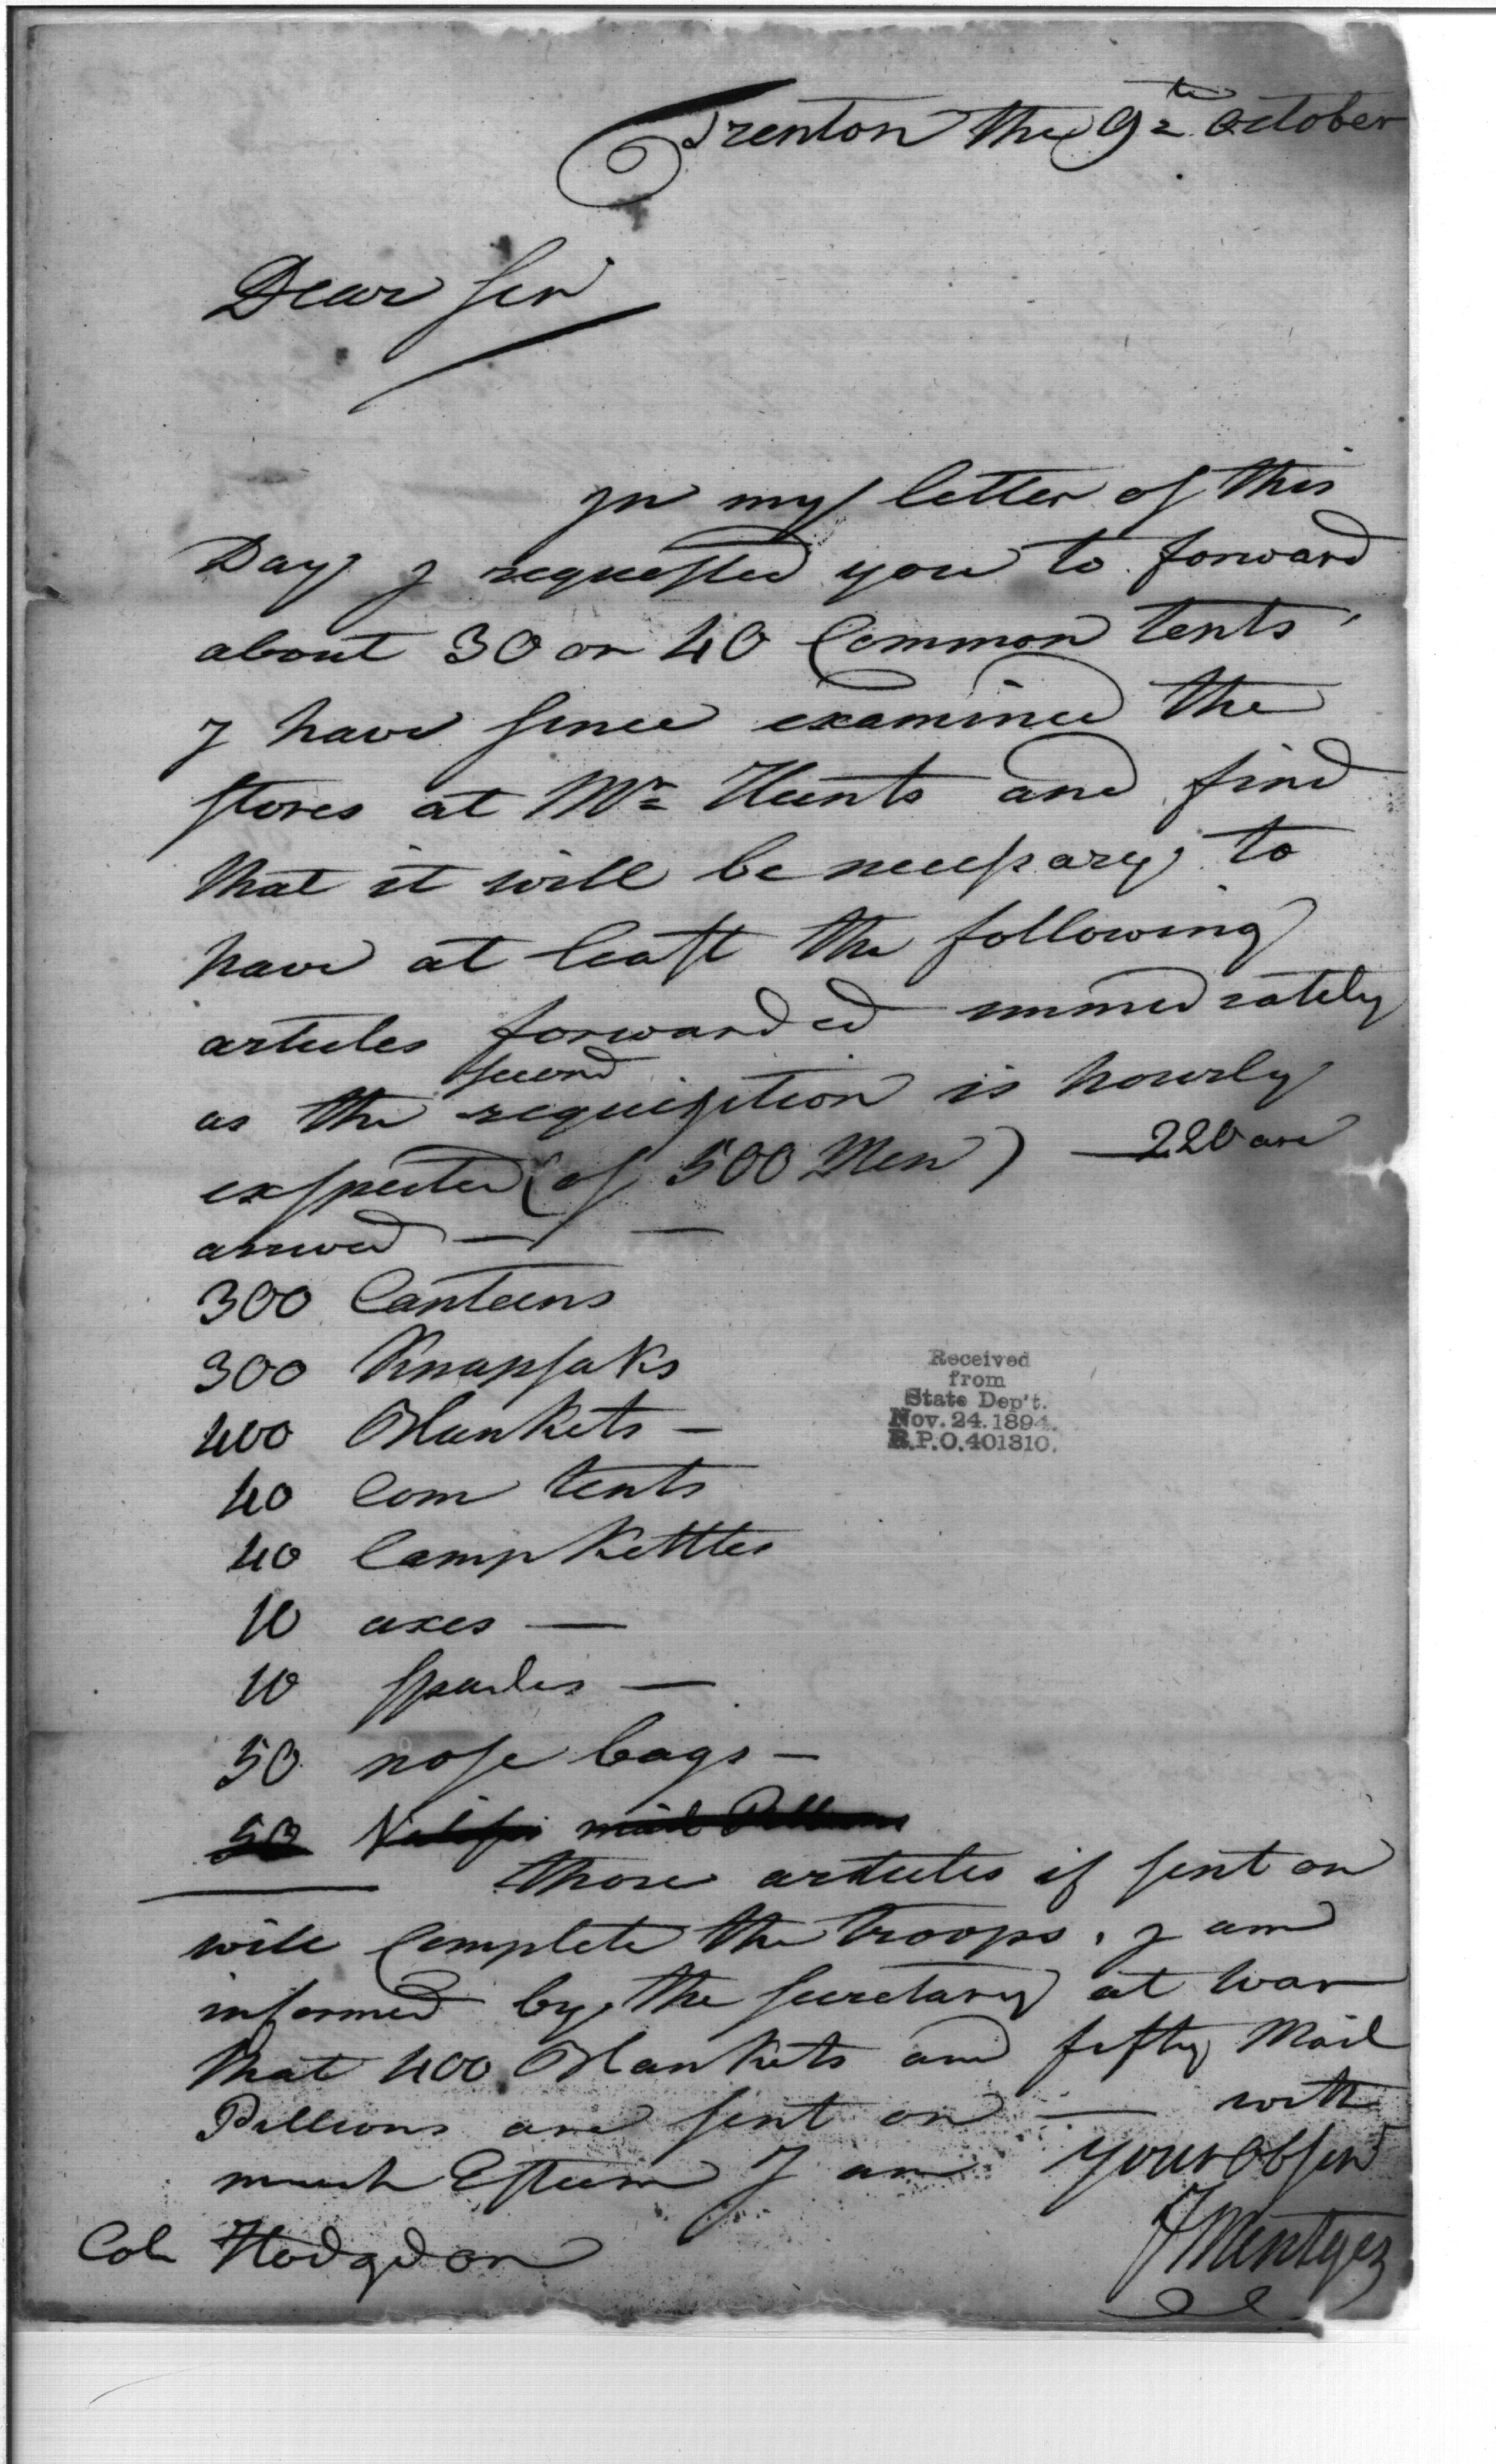 Trenton the 9th October
Dear Sir
In my letter of this
Day I requested you to forward
about 30 or 40 Common tents,
I have since examined the
stores at Mr Hunts and find
that it will be necessary to
have at least the following
articles forwarded immediately
second
as the requisition is hourly
expected (of 500 Men) — 220 are
arrived — —
300 Canteens
300 Knapsaks
400 Blankets —
40 Com tents
40 Camp Kettles
10 axes —
10 spades —
50 nose bags —
50 Valises mail Pillions
those articles if sent on
will Complete the troops. I am
informed by the secretary at war
that 400 Blankets and fifty Mail
Pillions are sent on — with
much Esteem I am your ob ser
Col Hodgdon
F Mentges
Received
from
State Dep't.
Nov. 24. 1894.
R.P.O. 401310.